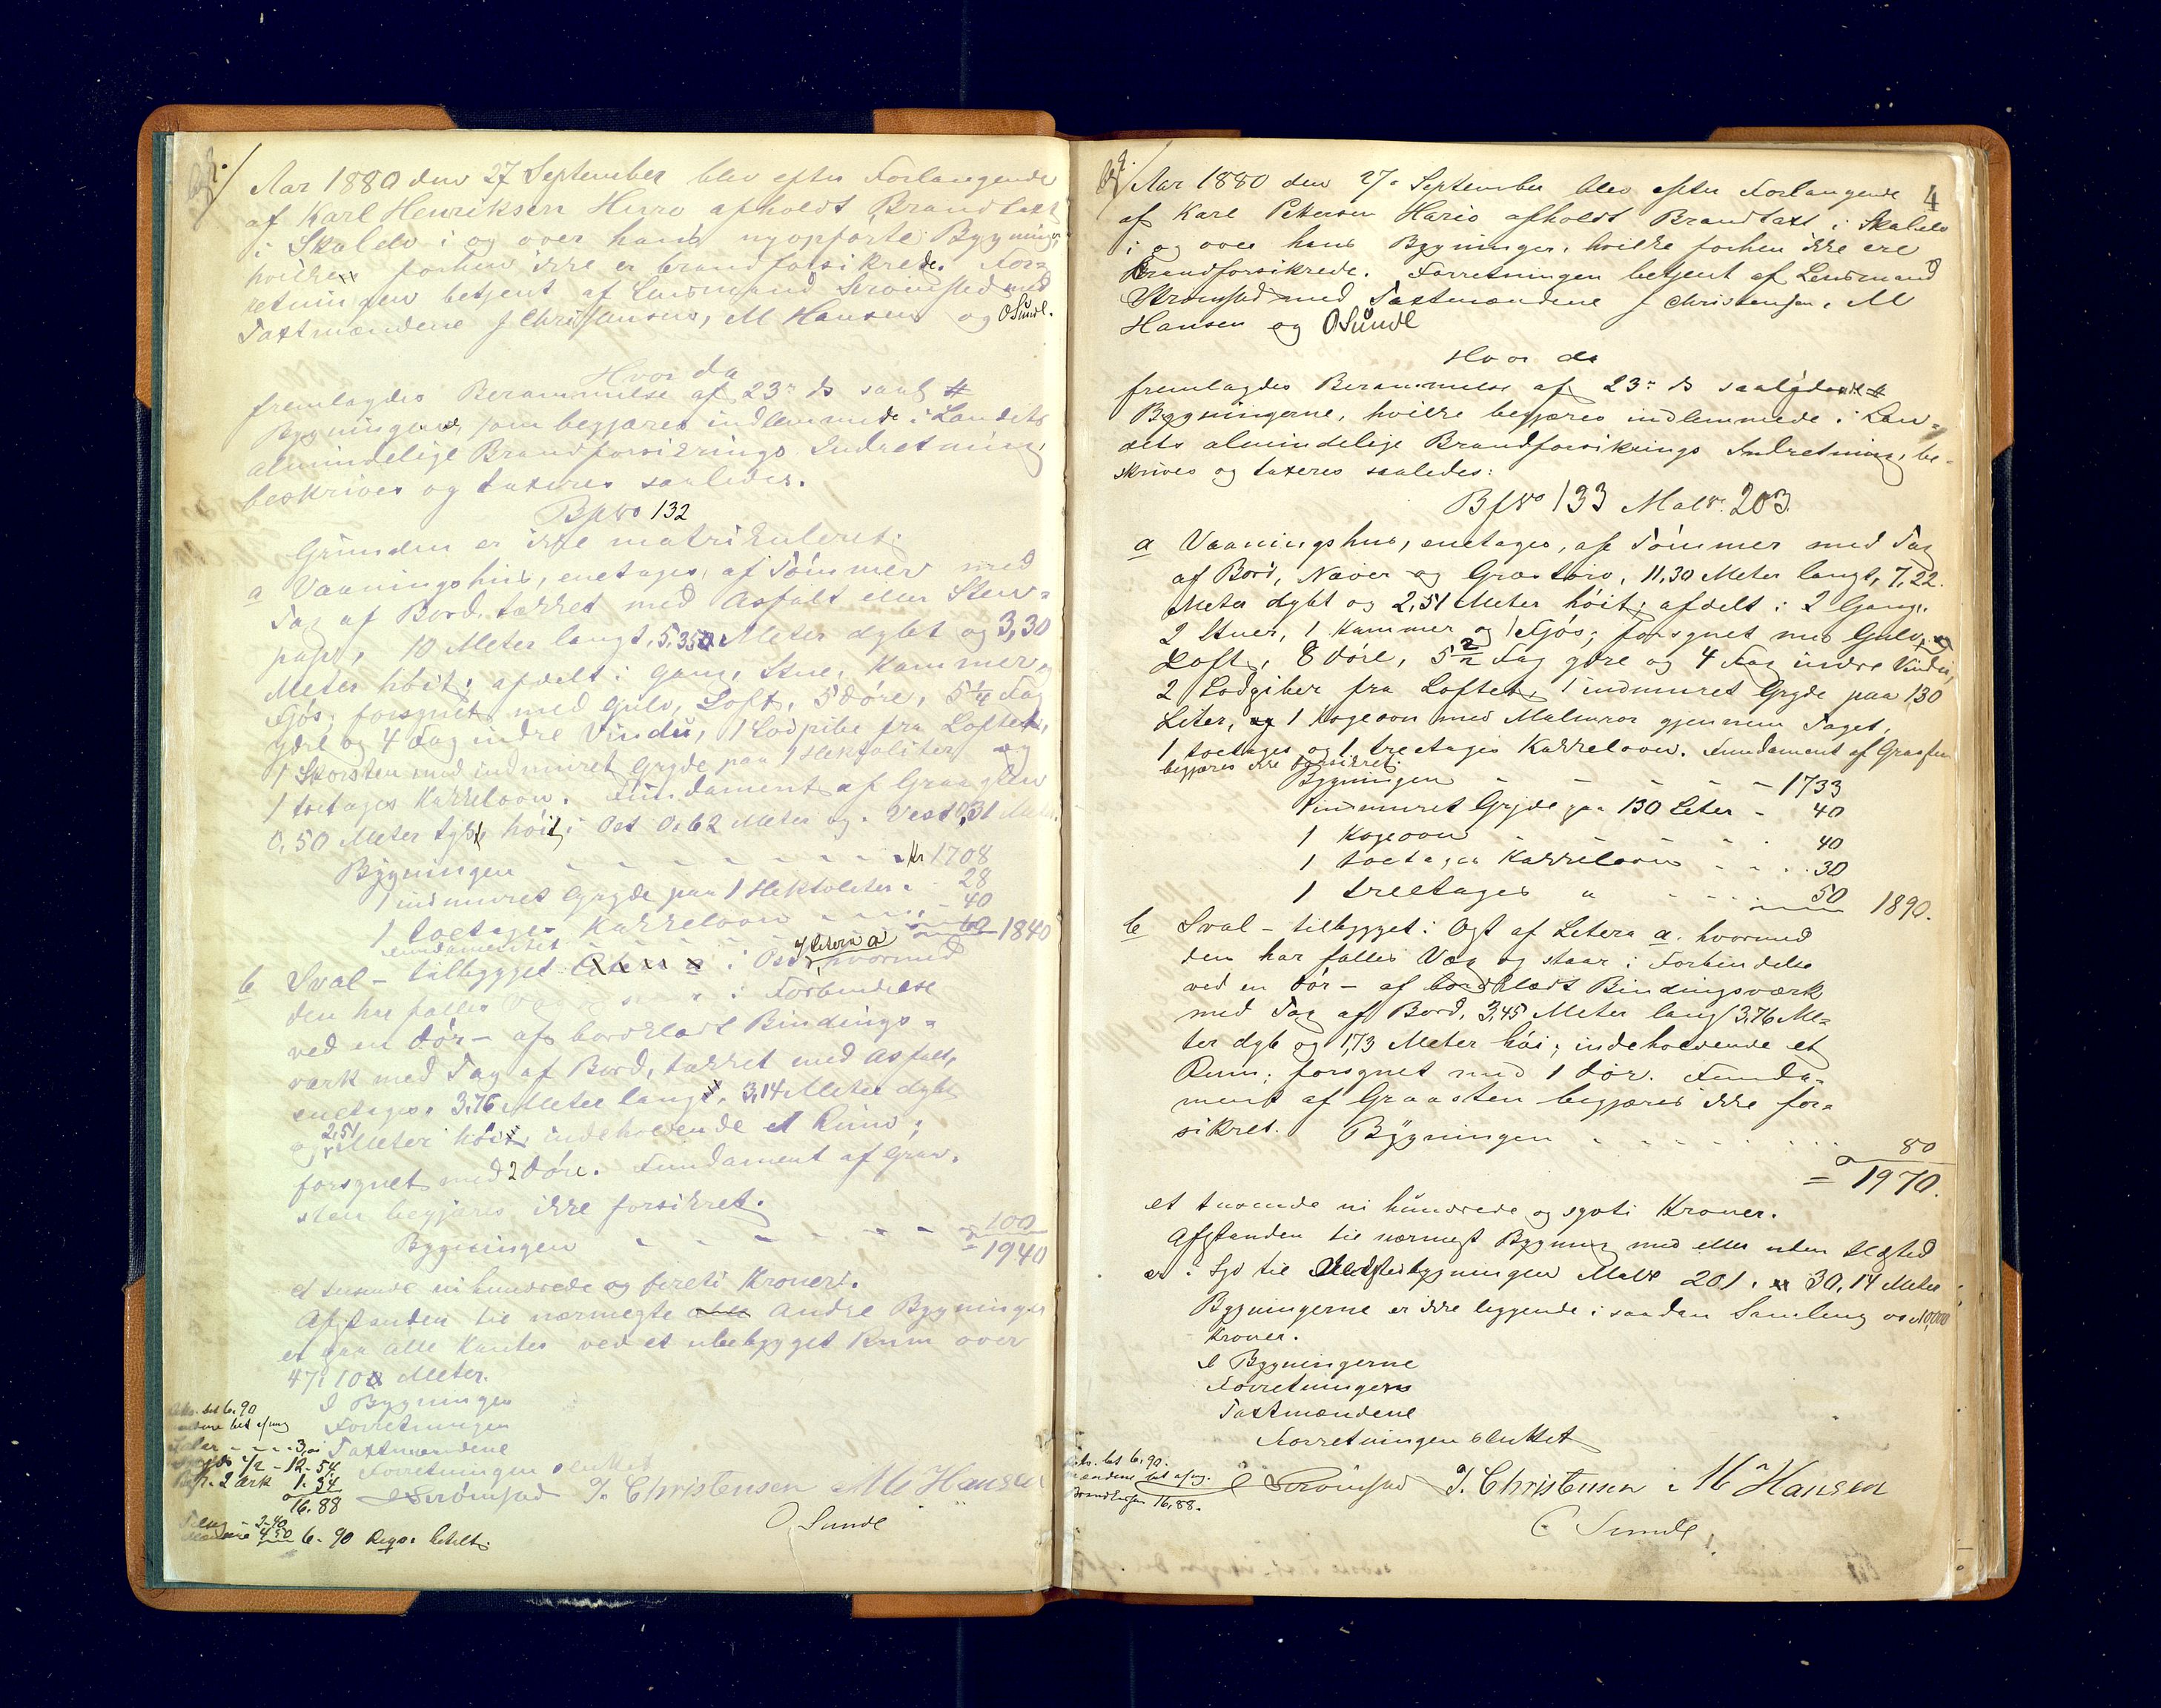 Aar 1880 den 27 September blev efter Forlangende
af Karl Henriksen afholdt Brandtaxt
i Skalelv i og over hans nyopførte Bygninger,
hvilke forhen ikke er brandforsikrede. For=
retningen betjent af Lensmand Strømstad med
Taxtmændene J Christensen, M Hansen og O Sunde.
Hvor da
fremlagdes Berammelse af 23 ds samt
Bygningerne, som begjæres indlemmede i Landets
almindelige Brandforsikrings Indretning,
beskrives og taxeres saaledes.
Bfno 132
Grunden er ikke matrikuleret.
a Vaaningshus, enetages, af Tømmer med
Tag af Bord, tækket med Asfalt eller Sten=
pap, 10 Meter langt, 5,35 Meter dybt og 3,30
Meter høit; afdelt i Gang, Stue, Kammer,
Fjøs; forsynet med Gulv, Loft, 5 Døre, 5¼ Fag
ydre og 4 Fag indre Vindu, 1 Lodpibe fra Loftet,
1 Skorsten med indmuret Gryde paa 1 Hektoliter og
1 toetages Kakkelovn. Fundament af Graasten
0,50 Meter tykt, høit i Ost 0,62 Meter og i Vest 0,31
Bygningen - - - - Kr 1708
1 indmuret Gryde paa 1 Hektoliter - 28
1 toetages Kakkelovn - - - 40
Fundamentet - - - 1840
b Sval - tilbygget i Ost af Litera a, hvormed
den har fælles i Forbindelse
ved en Dør - af bordklædt Bindings=
værk med Tag af Bord, tækket med Asfalt,
enetages, 3,76 Meter lang, 3,14 Meter dyb
og 2,51 Meter høi; indeholdende et Rum;
forsynet med 2 Døre. Fundament af Graa=
sten begjæres ikke forsikret.
Bygningen - - - - 100
= 1940
et tusende ni hundrede og fireti Kroner.
Afstanden til nærmeste andre Bygninger
er paa alle Kanter ved et ubebygget Rum over
47,10 Meter.
Bygningen
Forretningen
Taxtmændene
Forretningen sluttet
Strømstad J. Christensen M Hansen
O. Sunde
bet 6.90
12.54
2 Ark 1.34
16.88
6.90 Reqv. betalt.
4
Aar 1880 den 27 September blev efter Forlangende
af Karl Petersen afholdt Brandtaxt i Skalelv
i og over hans Bygninger, hvilke forhen ikke ere
Brandforsikrede. Forretningen betjent af Lensmand
Strømstad med Taxtmændene J Christensen, M
Hansen og O Sunde
Hvor da
fremlagdes Berammelse af 23 ds
Bygningerne, hvilke begjæres indlemmede i Lan=
dets almindelige Brandforsikrings Indretning, be=
skrives og taxeres saaledes:
Bfno 133 Matr. 203.
a Vaaningshus, enetages, af Tømmer med Tag
af Bord, Næver og Græstørv, 11,30 Meter langt, 7,22
Meter dybt og 2,51 Meter høit; afdelt i 2 Gange,
2 Stuer, 1 Kammer og 1 Fjøs; forsynet med Gulv,
Loft, 8 Døre, 5 2/2 Fag ydre og 4 Fag indre Vindu,
2 Lodpiber fra Loftet, 1 indmuret Gryde paa 130
Liter, 1 Kogeovn med Malmrør gjennem Taget,
1 toetages og 1 treetages Kakkelovn. Fundament af Graasten
begjæres ikke forsikret.
Bygningen - - - - 1733
1 indmuret Gryde paa 130 Liter - 40
1 Kogeovn - - - 40
1 toetages Kakkelovn - - - 30
1 treetages " - - - 50 1890.
b Sval - tilbygget i Øst af Litera a, hvormed
den har fælles Væg og staar i Forbindelse
ved en Dør - af bordklædt Bindingsværk
med Tag af Bord, 3,45 Meter lang, 3,76 Me=
ter dyb og 1,73 Meter høi; indeholdende et
Rum; forsynet med 1 Dør. Funda=
ment af Graasten begjæres ikke for=
sikret. Bygningen - - - - 80
= 1970.
et tusende ni hundrede og sytti Kroner.
Afstanden til nærmest Bygning med eller uden Ildsted
er i Syd til Matr 201, 30,14 Meter
Bygningerne er ikke liggende i saadan Samling 10,000
Kroner.
Bygningerne
Forretningen
Taxtmændene
Forretningen sluttet
Strømstad J. Christensen M Hansen
O Sunde
bet 6.90.
16.88.